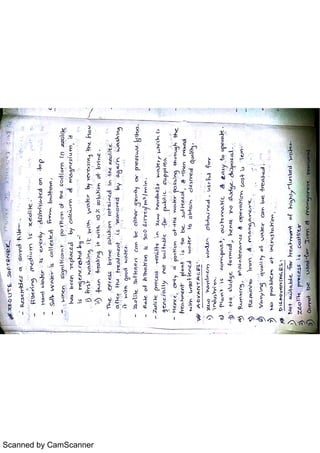 * ZEOLITE SOFTENER
- Resembles a sand filter
- filtering medium is zeolite.
- Hard water is evenly distributed on top
- Soft water is collected from bottom.
- When significant portion of the sodium in zeolite
has been replaced by calcium & magnesium, it
is regenerated by:-
i) first washing it with water by reversing the flow
ii) then treating it with 10% solution of brine.
- The excess brine solution retained in the zeolite
after the treatment is removed by again washing
it with good water
- Zeolite softener can be either gravity or pressure filter.
- Rate of filtration is 300 litres/m²/min.
- Zeolite process results in zero hardness water, which is
generally not suitable for public supplies.
- Hence, only a portion of the water passing through the
treatment plant is to be softened, & then mixed
with unsoftened water to obtain desired quality.
* ADVANTAGES:-
1) Zero hardness water obtained, useful for
2) Plant is compact, automatic & easy to operate.
3) No sludge formed, hence no sludge disposal.
4) Running, maintenance & operation cost is less.
5) Removes iron & manganese.
6) Varying quality of water can be treated.
7) No problem of incrustation.
* DISADVANTAGES:-
1) Not suitable for treatment of highly turbid water.
2) Zeolite process is costlier
3) Cannot be used for iron & manganese
Scanned by CamScanner